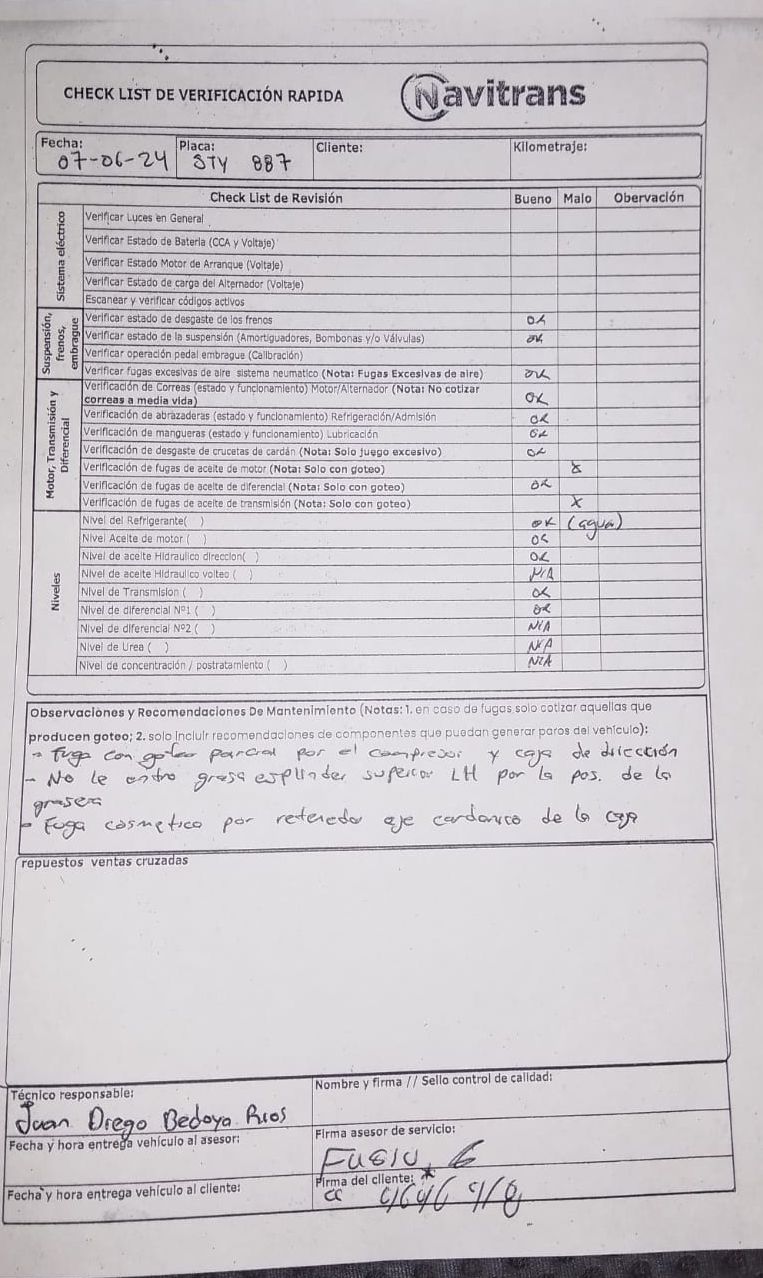 CHECK LIST DE VERIFICACIÓN RAPIDA Navitrans
Fecha: 07-06-24 Placa: STY 887 Cliente: Kilometraje:
Check List de Revisión Bueno Malo Obervación
Sistema eléctrico
Verificar Luces en General
Verificar Estado de Bateria (CCA y Voltaje)
Verificar Estado Motor de Arranque (Voltaje)
Verificar Estado de carga del Alternador (Voltaje)
Escanear y verificar códigos activos
Suspensión, frenos, embrague
Verificar estado de desgaste de los frenos OK
Verificar estado de la suspensión (Amortiguadores, Bombonas y/o Válvulas) OK
Verificar operación pedal embrague (Calibración)
Verificar fugas excesivas de aire sistema neumatico (Nota: Fugas Excesivas de aire) OK
Motor, Transmisión y Diferencial
Verificación de Correas (estado y funcionamiento) Motor/Alternador (Nota: No cotizar
correas a media vida) OK
Verificación de abrazaderas (estado y funcionamiento) Refrigeración/Admisión OK
Verificación de mangueras (estado y funcionamiento) Lubricación OK
Verificación de desgaste de crucetas de cardán (Nota: Solo juego excesivo) OK
Verificación de fugas de aceite de motor (Nota: Solo con goteo) X
Verificación de fugas de aceite de diferencial (Nota: Solo con goteo) OK
Verificación de fugas de aceite de transmisión (Nota: Solo con goteo) X
Niveles
Nivel del Refrigerante( ) OK (agua)
Nivel Aceite de motor ( ) OK
Nivel de aceite Hidraulico direccion( ) OK
Nivel de aceite Hidraulico volteo ( ) N/A
Nivel de Transmision ( ) OK
Nivel de diferencial Nº1 ( ) OK
Nivel de diferencial Nº2 ( ) N/A
Nivel de Urea ( ) N/A
Nivel de concentración / postratamiento ( ) N/A
Observaciones y Recomendaciones De Mantenimiento (Notas: 1. en caso de fugas solo cotizar aquellas que
producen goteo; 2. solo incluir recomendaciones de componentes que puedan generar paros del vehículo):
- Fuga con goteo parcial por el compresor y caja de dirección
- No le entro grasa esplinder superior LH por la pos. de la
grasera
- Fuga cosmetico por retenedor eje cardanico de la caja
repuestos ventas cruzadas
Técnico responsable:
Juan Diego Bedoya Rios
Nombre y firma // Sello control de calidad:
Fecha y hora entrega vehículo al asesor:
Firma asesor de servicio:
Fecha y hora entrega vehículo al cliente:
Firma del cliente: *
CC